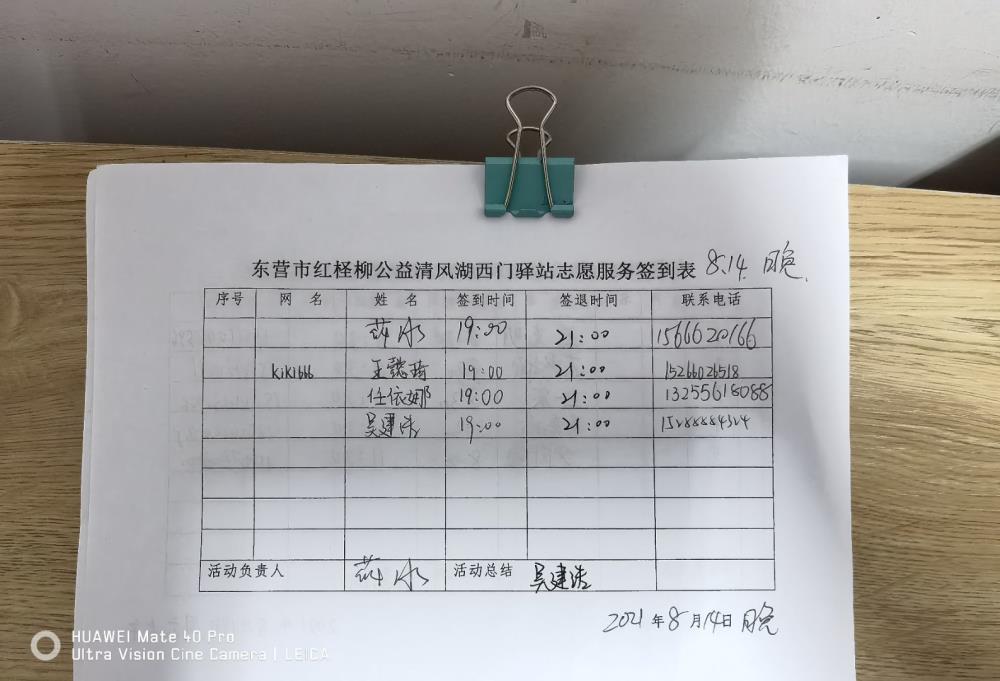 东营市红柽柳公益清风湖西门驿站志愿服务签到表 8.14. 晚
序号 网 名 姓 名 签到时间 签退时间 联系电话
19:00 21:00 15666020166
kiki666 王懿琦 19:00 21:00 15266026518
任依娜 19:00 21:00 13255618088
吴建浩 19:00 21:00
活动负责人 活动总结 吴建浩
2021年8月14日 晚
HUAWEI Mate 40 Pro
Ultra Vision Cine Camera | LEICA